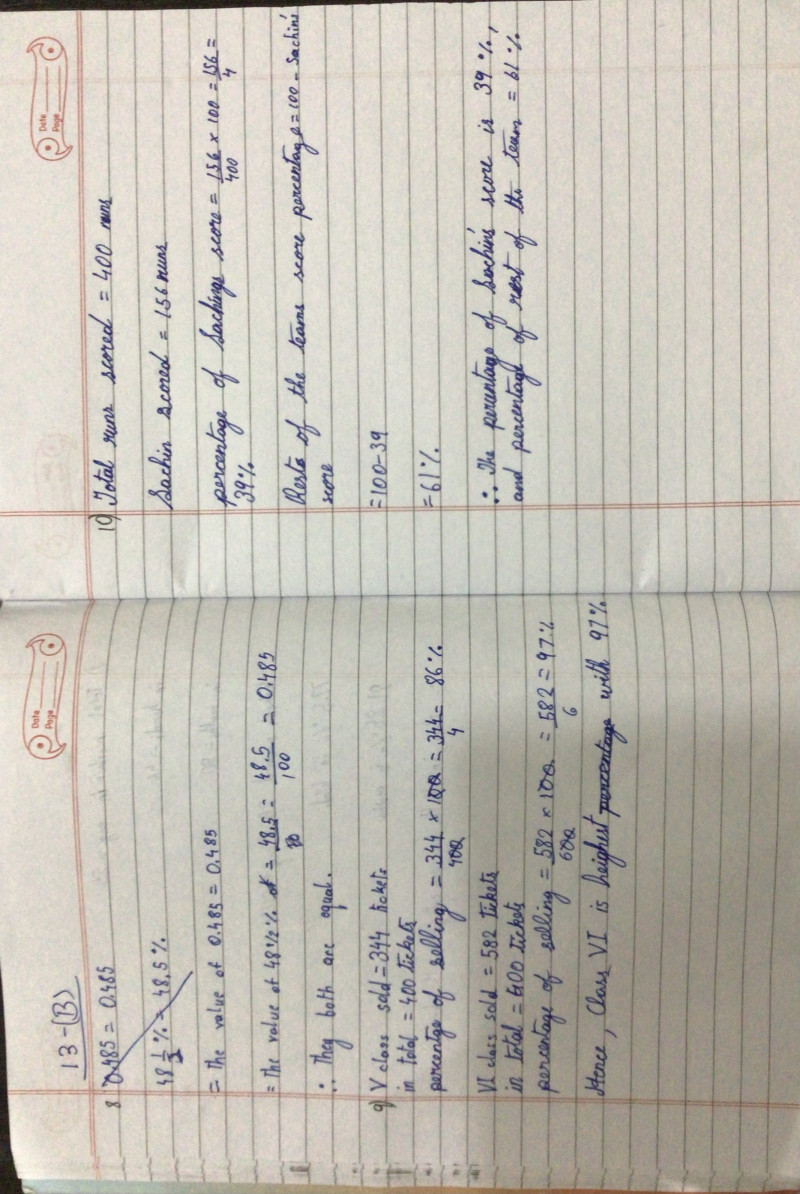 Date
Page
13-(B)
8 0.485 = 0.485
48 1/2 % = 48.5 %
= the value of 0.485 = 0.485
= the value of 48 1/2 % = 48.5 = 48.5/100 = 0.485
∴ They both are equal.
9) V class sold = 344 tickets
in total = 400 tickets
percentage of selling = 344/400 × 100 = 344/4 = 86 %
VI class sold = 582 tickets
in total = 600 tickets
percentage of selling = 582/600 × 100 = 582/6 = 97 %
Hence, Class VI is heighest percentage with 97 %
Date
Page
10) Total runs scored = 400 runs
Sachin scored = 156 runs
percentage of Sachins score = 156/400 × 100 = 156/4 =
39 %
Rests of the teams score percentage = 100 - Sachins'
score
= 100-39
= 61 %
∴ The percentage of Sachins' score is 39 %,
and percentage of rest of the team = 61 %